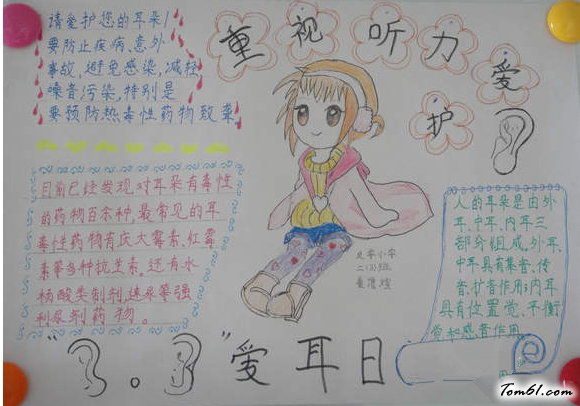 重视听力爱护
请爱护您的耳朵!
要防止疾病,意外
事故,避免感染,减轻
噪音污染,特别是
要预防热毒性药物致聋
目前已经发现,对耳朵有毒性
的药物百余种,最常见的耳
毒性药物有庆大霉素、红霉
素等多种抗生素,还有水
杨酸类制剂,速尿等强
利尿剂药物。
小学
班
人的耳朵是由外
耳、中耳、内耳三
部分组成。外耳、
中耳具有集音、传
音、扩音作用;内耳
具有位置觉、平衡
觉和感音作用。
"3。3"爱耳日
Tom61.com